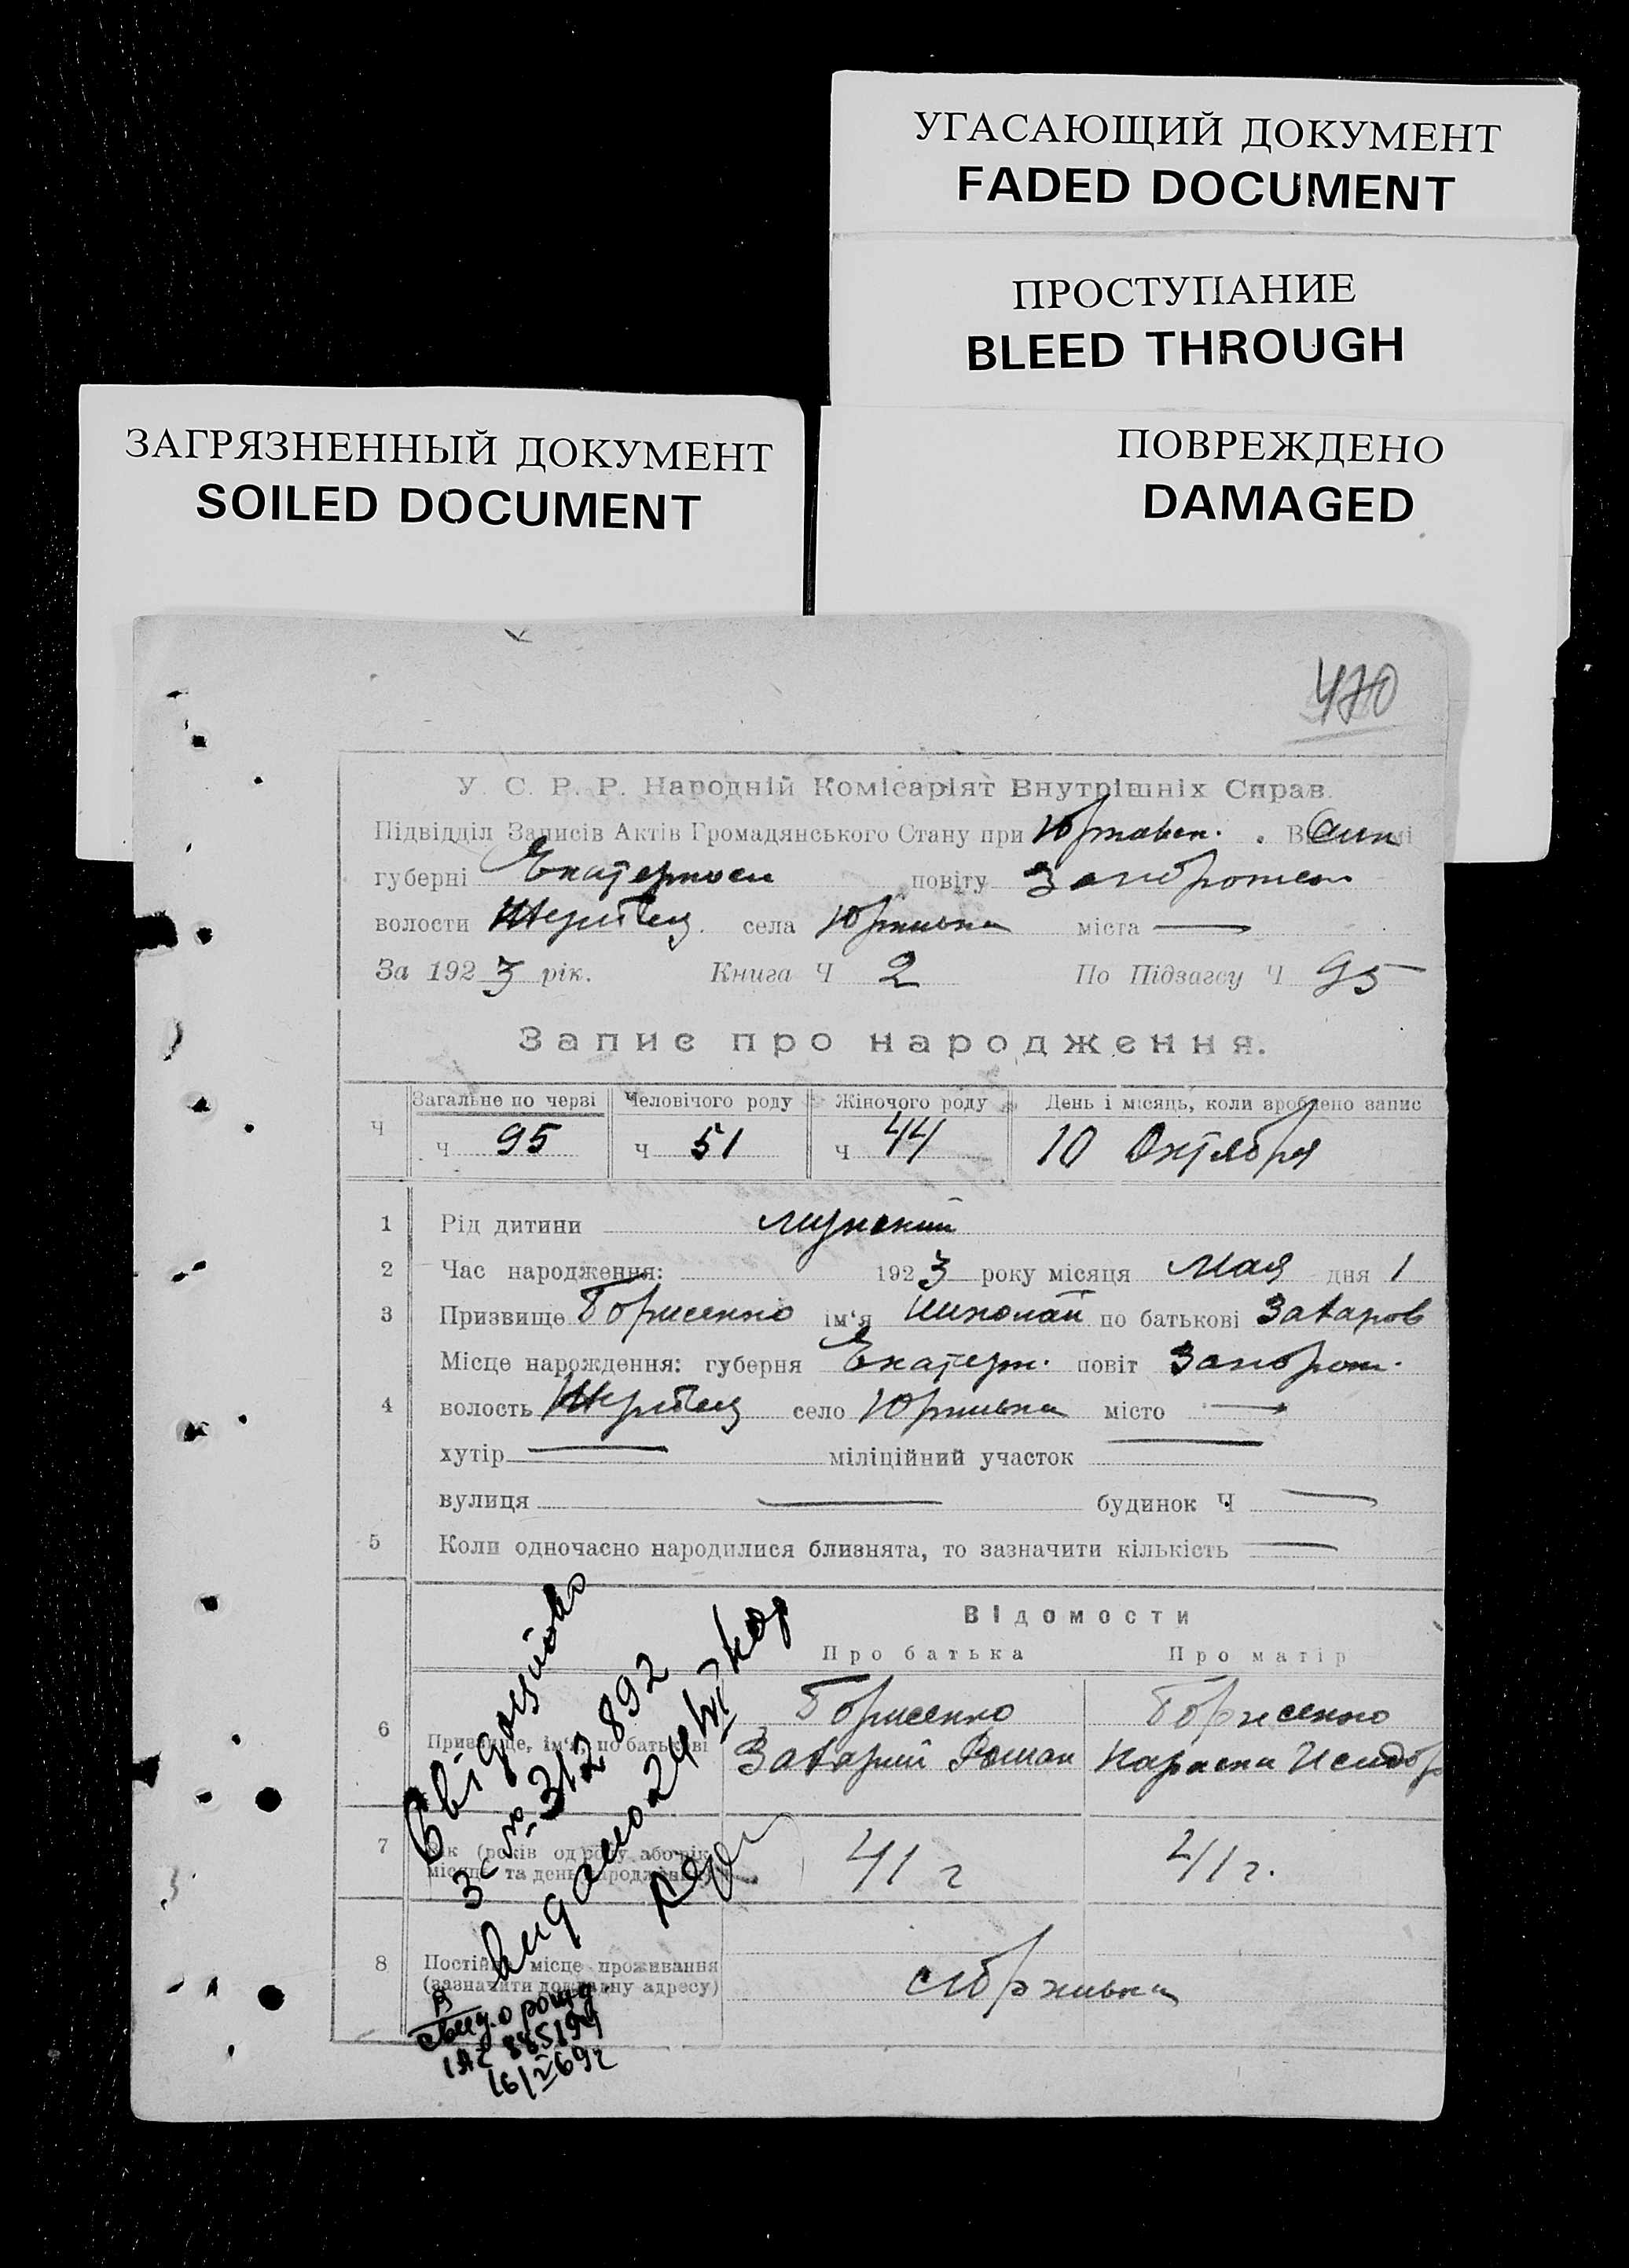 УГАСАЮЩИЙ ДОКУМЕНТ
FADED DOCUMENT
ПРОСТУПАНИЕ
BLEED THROUGH
ЗАГРЯЗНЕННЫЙ ДОКУМЕНТ
SOILED DOCUMENT
ПОВРЕЖДЕНО
DAMAGED
470
У. С. Р. Р. Народній Комісаріят Внутрішніх Справ.
Підвідділ Записів Актів Громадянського Стану при
губерні повіту
волости села міста —
За 1923 рік. Книга Ч 2 По Підзагсу Ч 95
Запис про народження.
Ч Загальне по черзі Человічого роду Жіночого роду День і місяць, коли зроблено запис
Ч 95 Ч 51 Ч 44 10 Октября
1 Рід дитини мужский
2 Час народження: 1923 року місяця Мая дня 1
3 Призвище Борисенко ім‘я Николай по батькові Захаров
Місце народження: губерня Екатерин. повіт Запорож.
4 волость село місто —
хутір — міліційний участок —
вулиця — будинок Ч —
5 Коли одночасно народилися близнята, то зазначити кількість —
Відомости
Про батька Про матір
6 Призвище, ім‘я, по батькові Борисенко Борисенко
Захарий Роман Исидор
7 Вік (років од роду або рік, місяць та день народження) 41 г 41 г.
8 Постійне місце проживання
(зазначити докладну адресу)
Свідоцтво
з с № 312892
видано 24
свид. о рожд.
885194
16/V 69г